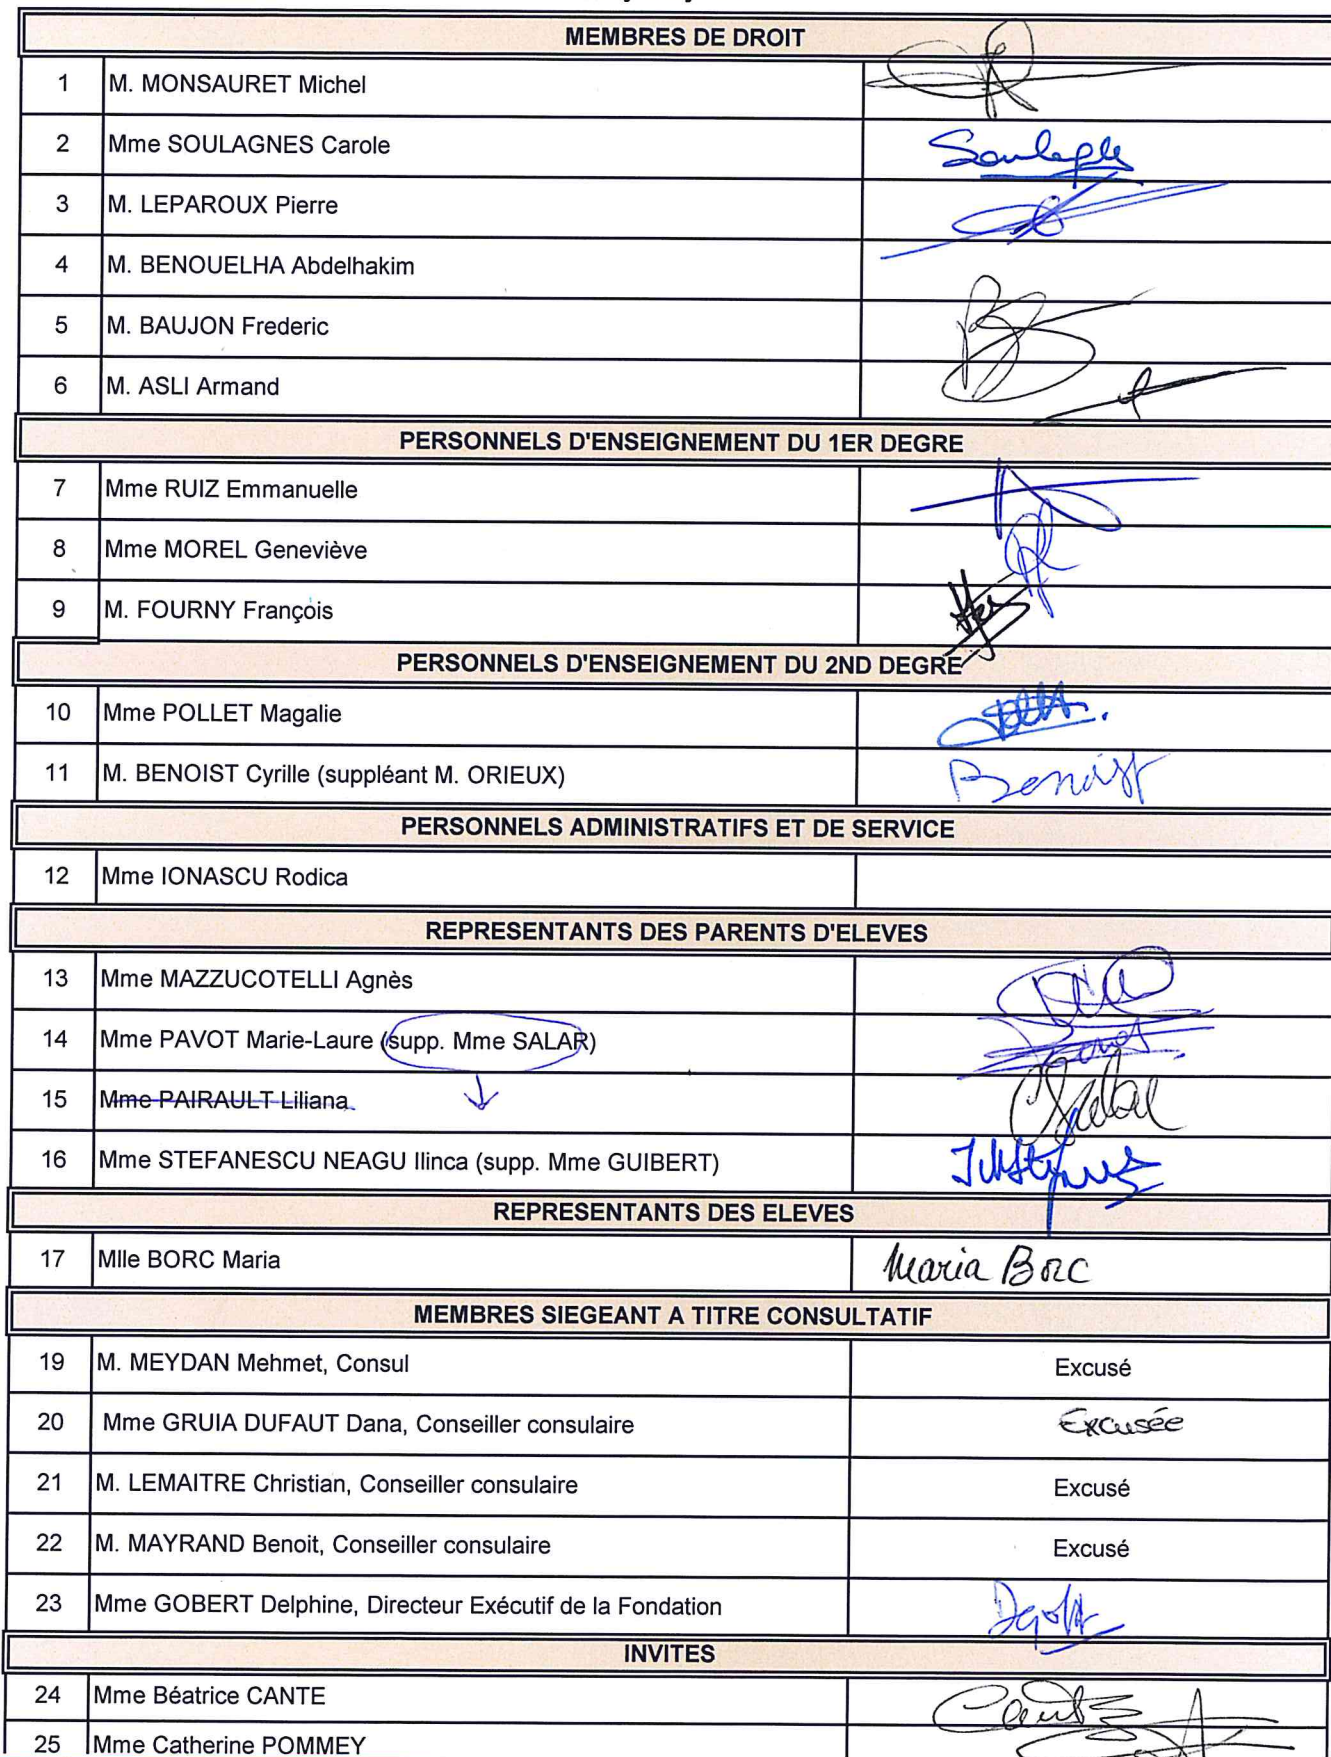 MEMBRES DE DROIT
1 M. MONSAURET Michel
2 Mme SOULAGNES Carole
3 M. LEPAROUX Pierre
4 M. BENOUELHA Abdelhakim
5 M. BAUJON Frederic
6 M. ASLI Armand
PERSONNELS D'ENSEIGNEMENT DU 1ER DEGRE
7 Mme RUIZ Emmanuelle
8 Mme MOREL Geneviève
9 M. FOURNY François
PERSONNELS D'ENSEIGNEMENT DU 2ND DEGRE
10 Mme POLLET Magalie
11 M. BENOIST Cyrille (suppléant M. ORIEUX) Benoist
PERSONNELS ADMINISTRATIFS ET DE SERVICE
12 Mme IONASCU Rodica
REPRESENTANTS DES PARENTS D'ELEVES
13 Mme MAZZUCOTELLI Agnès
14 Mme PAVOT Marie-Laure (supp. Mme SALAR)
15 Mme PAIRAULT Liliana
16 Mme STEFANESCU NEAGU Ilinca (supp. Mme GUIBERT)
REPRESENTANTS DES ELEVES
17 Mlle BORC Maria Maria BORC
MEMBRES SIEGEANT A TITRE CONSULTATIF
19 M. MEYDAN Mehmet, Consul Excusé
20 Mme GRUIA DUFAUT Dana, Conseiller consulaire Excusée
21 M. LEMAITRE Christian, Conseiller consulaire Excusé
22 M. MAYRAND Benoit, Conseiller consulaire Excusé
23 Mme GOBERT Delphine, Directeur Exécutif de la Fondation
INVITES
24 Mme Béatrice CANTE
25 Mme Catherine POMMEY